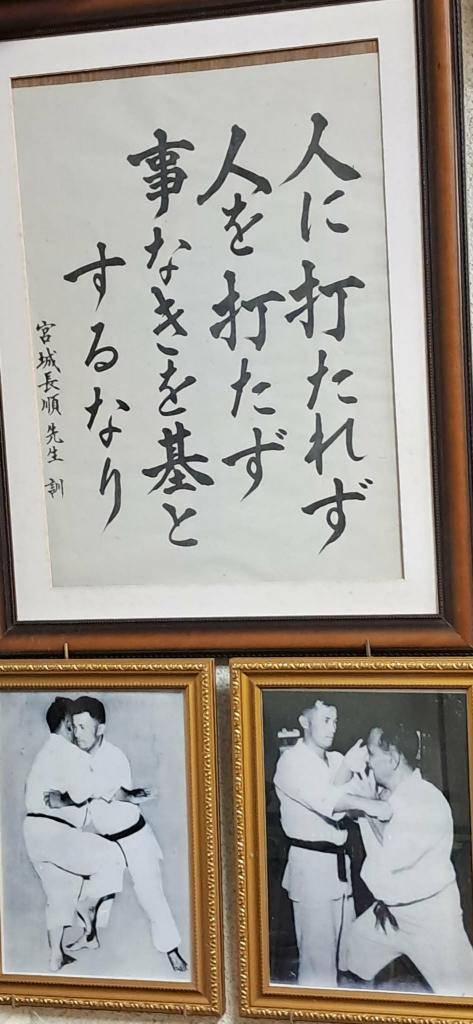 人に打たれず
人を打たず
事なきを基と
するなり
宮城長順先生 訓